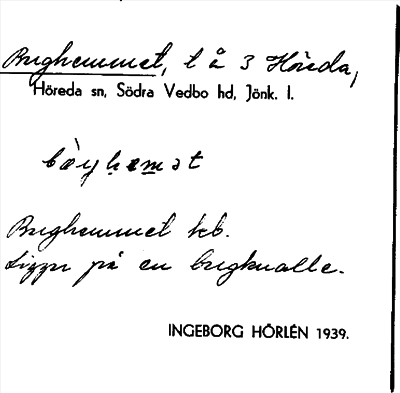 Berghemmet, t å 3 Höreda,
Höreda sn, Södra Vedbo hd, Jönk. l.
Berghemmet kb.
Ligger på en bergknalle.
INGEBORG HÖRLÉN 1939.